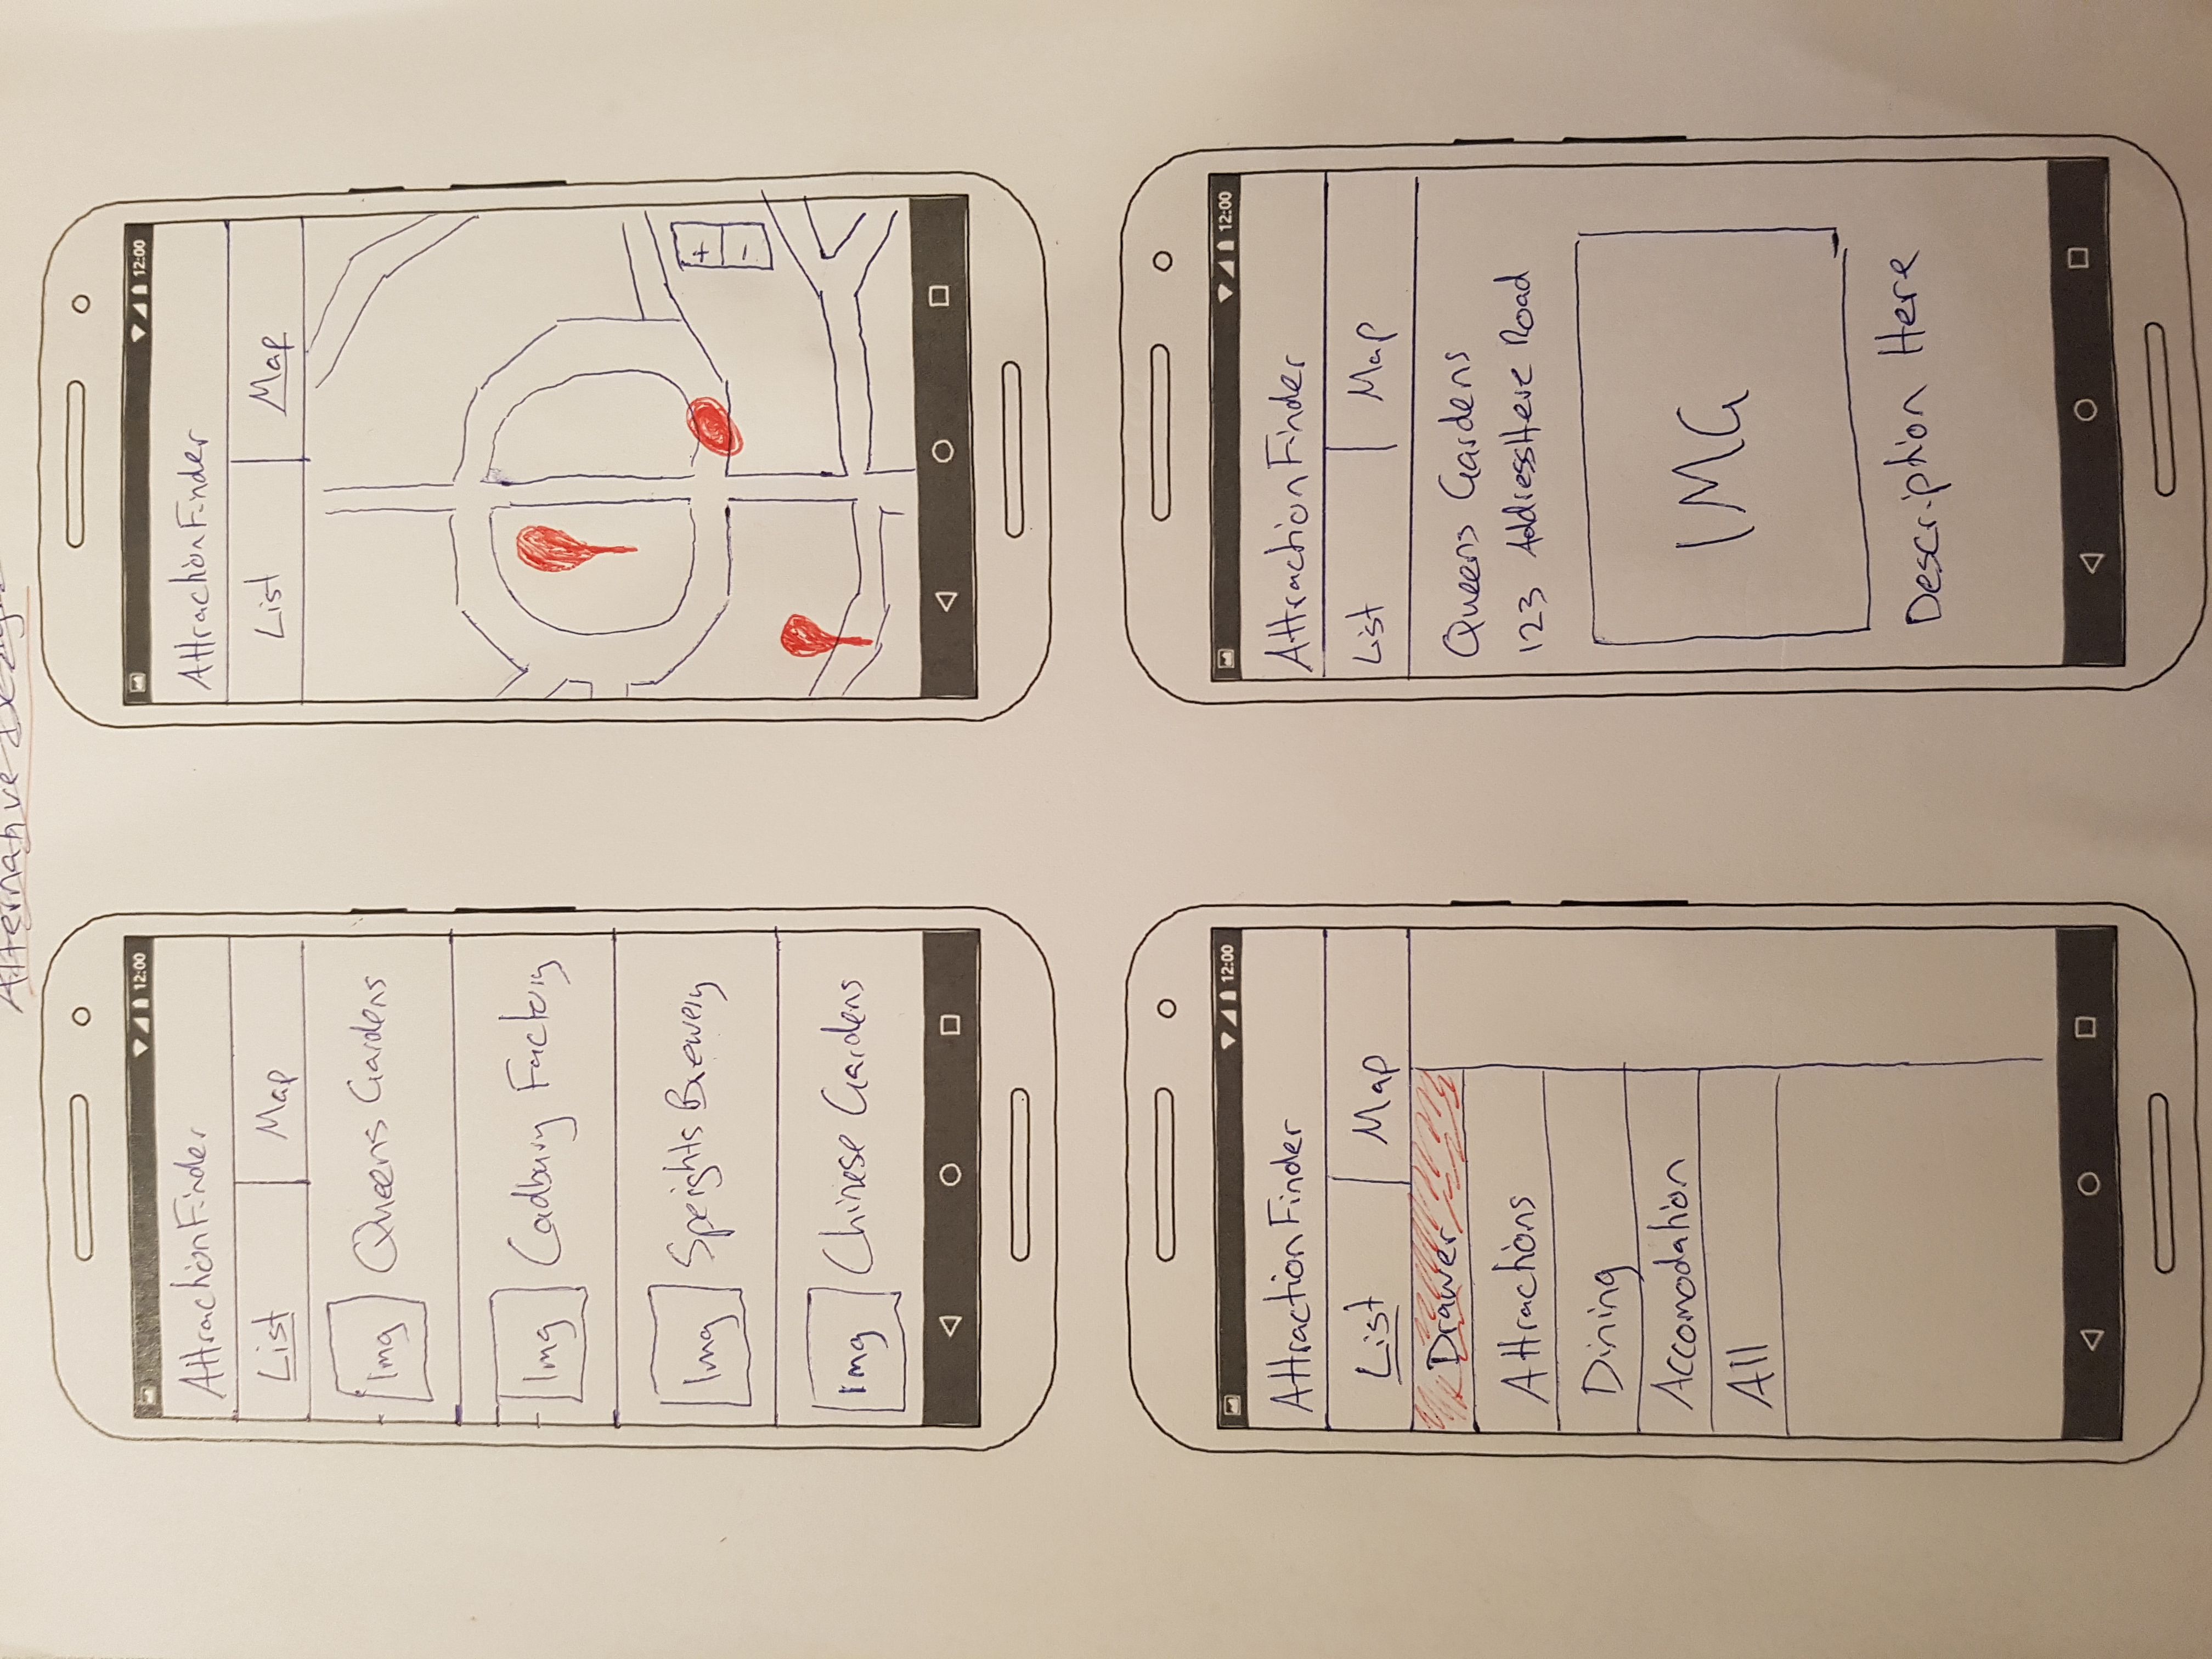 Alternative Design
12:00
AttractionFinder
List Map
Img Queens Gardens
Img Cadbury Factory
Img Speights Brewery
Img Chinese Gardens
12:00
AttractionFinder
List Map
+
-
12:00
AttractionFinder
List Map
Drawer
Attractions
Dining
Accomodation
All
12:00
AttractionFinder
List Map
Queens Gardens
123 AddressHere Road
IMG
Description Here